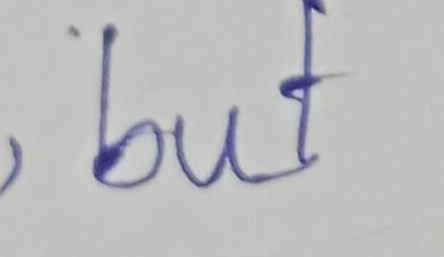 , but